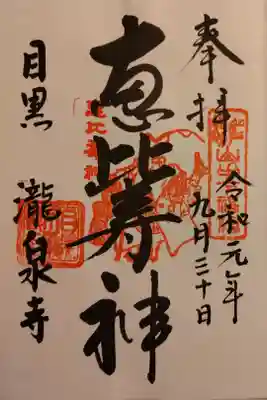 奉拝
令和元年
九月三十日
恵比寿神
目黒 瀧泉寺